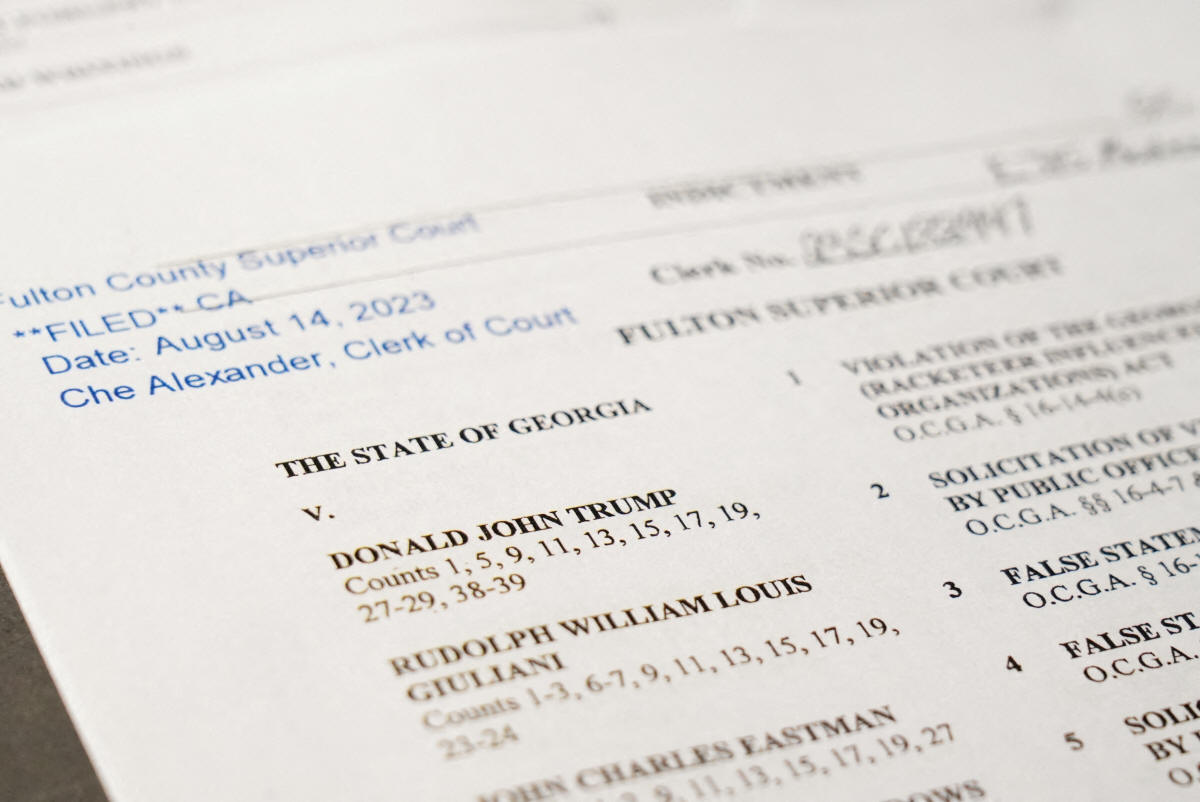 INDICTMENT
Clerk No.
FULTON SUPERIOR COURT
Fulton County Superior Court
**FILED** CA
Date: August 14, 2023
Che Alexander, Clerk of Court
THE STATE OF GEORGIA
V.
DONALD JOHN TRUMP
Counts 1, 5, 9, 11, 13, 15, 17, 19,
27-29, 38-39
RUDOLPH WILLIAM LOUIS
GIULIANI
Counts 1-3, 6-7, 9, 11, 13, 15, 17, 19,
23-24
JOHN CHARLES EASTMAN
9, 11, 13, 15, 17, 19, 27
1 VIOLATION OF THE
(RACKETEER
ORGANIZATIONS) ACT
O.C.G.A. § 16-14-4(c)
2 SOLICITATION OF
BY PUBLIC
O.C.G.A. §§ 16-4-7
3 FALSE
O.C.G.A. § 16-
4 FALSE ST
O.C.G.A.
5 SOLI
BY